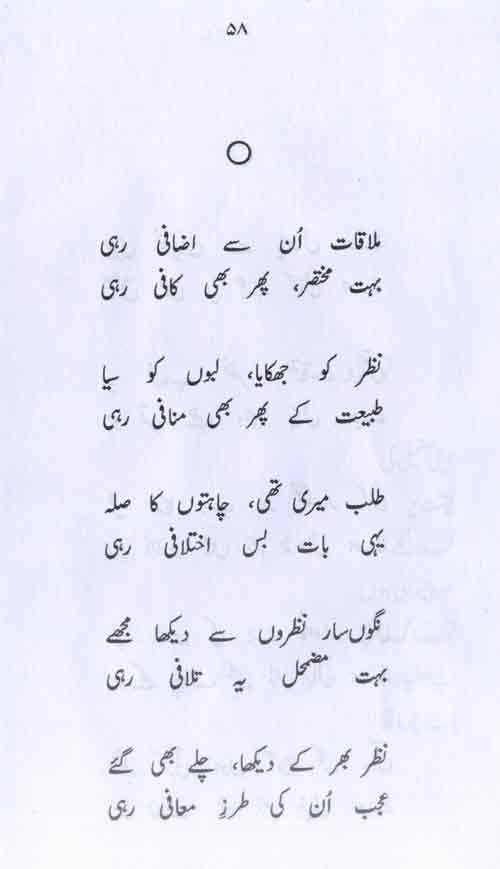 ۵۸
ملاقات اُن سے اضافی رہی
بہت مختصر، پھر بھی کافی رہی
نظر کو جھکایا، لبوں کو سیا
طبیعت کے پھر بھی منافی رہی
طلب میری تھی، چاہتوں کا صلہ
یہی بات بس اختلافی رہی
نگوں سار نظروں سے دیکھا مجھے
بہت مضمحل یہ تلافی رہی
نظر بھر کے دیکھا، چلے بھی گئے
عجب اُن کی طرزِ معافی رہی